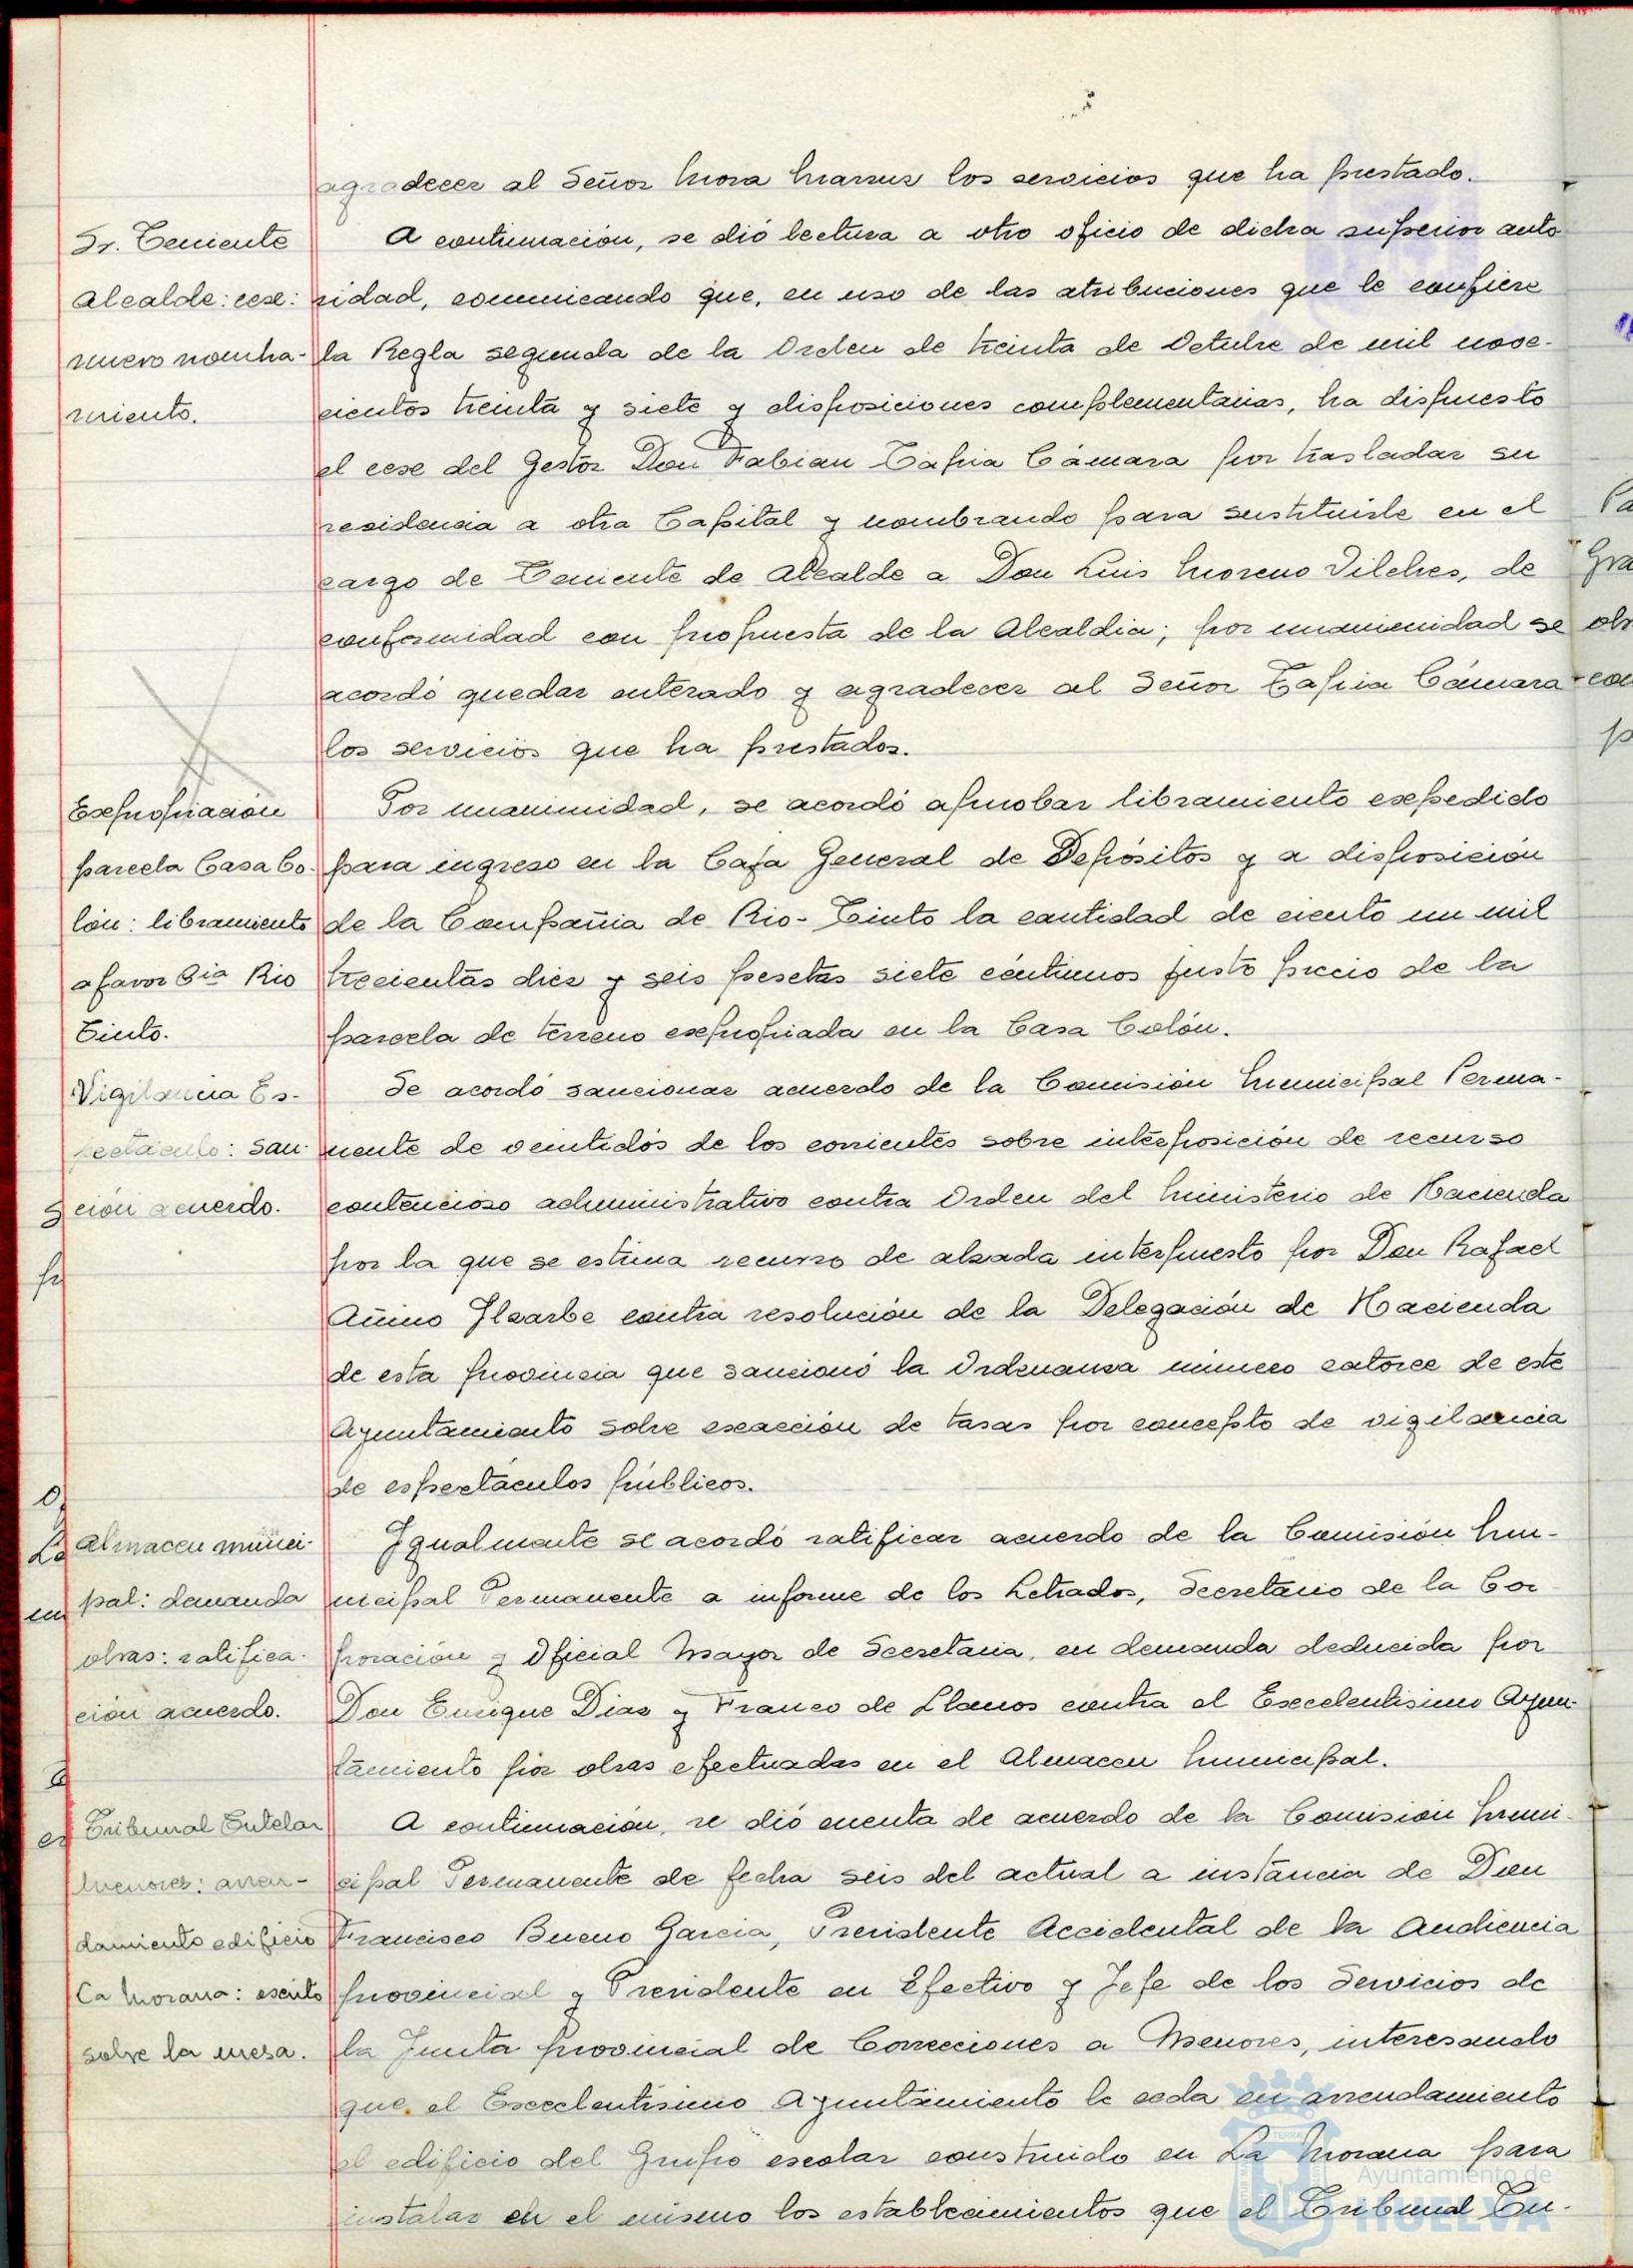 agradecer al Señor Mora Marrus los servicios que ha prestado.
Sr. Teniente
Alcalde: cese:
nuevo nombra-
miento.
A continuación, se dió lectura a otro oficio de dicha superior auto
ridad, comunicando que, en uso de las atribuciones que le confiere
la Regla segunda de la Orden de treinta de Octubre de mil nove-
cientos treinta y siete y disposiciones complementarias, ha dispuesto
el cese del Gestor Don Fabian Tapia Cámara por trasladar su
residencia a otra Capital y nombrando para sustituirle en el
cargo de Teniente de Alcalde a Don Luis Moreno Vilches, de
conformidad con propuesta de la Alcaldia; por unanimidad se
acordó quedar enterado y agradecer al Señor Tapia Cámara
los servicios que ha prestados.
Exepropiación
parcela Casa Co-
lón: libramiento
a favor Cia Rio
Tinto.
Por unanimidad, se acordó aprobar libramiento exepedido
para ingreso en la Caja General de Depósitos y a disposición
de la Compañia de Rio-Tinto la cantidad de ciento un mil
trecientas diez y seis pesetas siete céntimos justo precio de la
parcela de terreno exepropiada en la Casa Colón.
Vigilancia Es-
pectaculo: san-
ción acuerdo.
Se acordó sancionar acuerdo de la Comisión Municipal Perma-
nente de veintidós de los corrientes sobre interposición de recurso
contencioso administrativo contra Orden del Ministerio de Hacienda
por la que se estima recurso de alzada interpuesto por Don Rafael
Añino Ilzarbe contra resolución de la Delegación de Hacienda
de esta provincia que sancionó la Ordenanza número catorce de este
Ayuntamiento sobre exacción de tasas por concepto de vigilancia
de espectáculos públicos.
Almacen munici-
pal: demanda
obras: ratifica-
ción acuerdo.
Igualmente se acordó ratificar acuerdo de la Comisión Mu-
nicipal Permanente a informe de los Letrados, Secretario de la Cor
poración y Oficial Mayor de Secretaria, en demanda deducida por
Don Enrique Diaz y Franco de Llanos contra el Excelentisimo Ayun-
tamiento por obras efectuadas en el Almacen Municipal.
Tribunal Tutelar
Menores: arren-
damiento edificio
La Morana: escrito
sobre la mesa.
A continuación, se dió cuenta de acuerdo de la Comisión Muni-
cipal Permanente de fecha seis del actual a instancia de Don
Francisco Bueno Garcia, Presidente Accidental de la Audiencia
provincial y Presidente en Efectivo y Jefe de los Servicios de
la Junta provincial de Correcciones a Menores, interesando
que el Excelentisimo Ayuntamiento le ceda en arrendamiento
el edificio del Grupo escolar construido en La Morana para
instalar en el mismo los establecimientos que el Tribunal Tu-
Ayuntamiento de
HUELVA